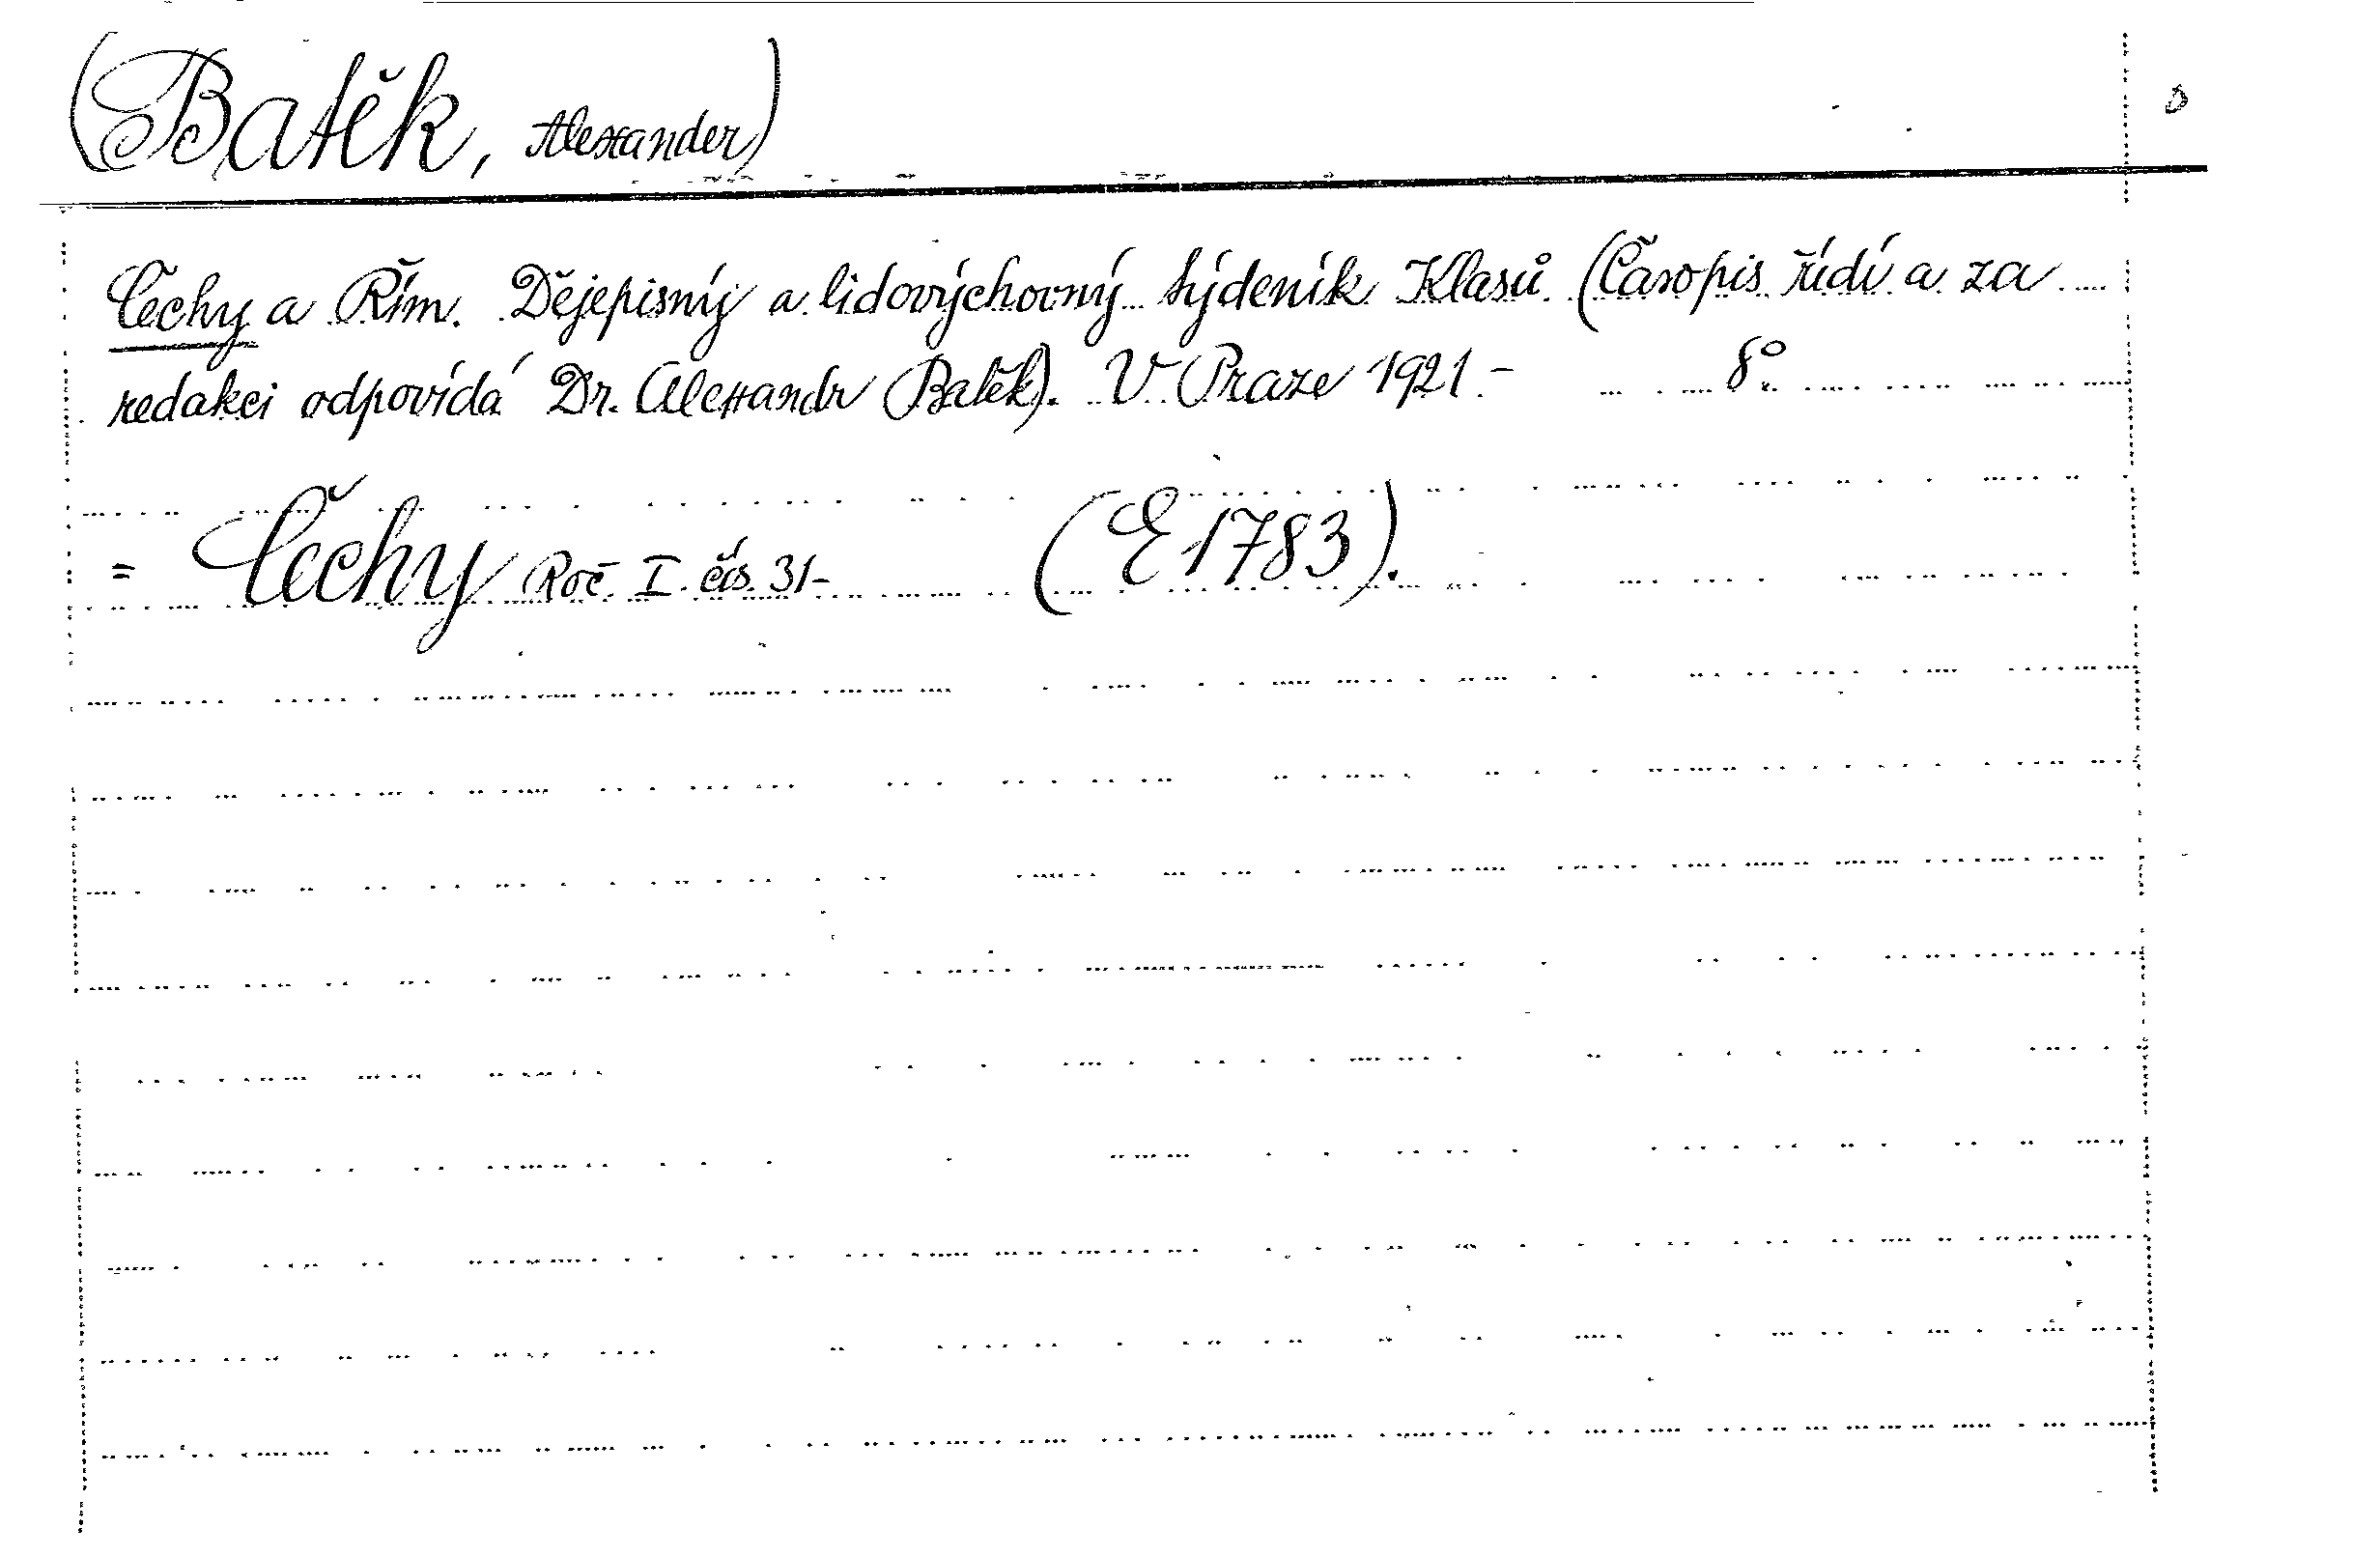 (Batěk, Alexander)
Čechy a Řím. Dějepisný a lidovýchovný týdeník Klasů (Časopis řídí a za
redakci odpovídá Dr. Alexandr Batěk). V Praze 1921.- 8°.
= Čechy Roč. I. čís. 31- (E 1783).